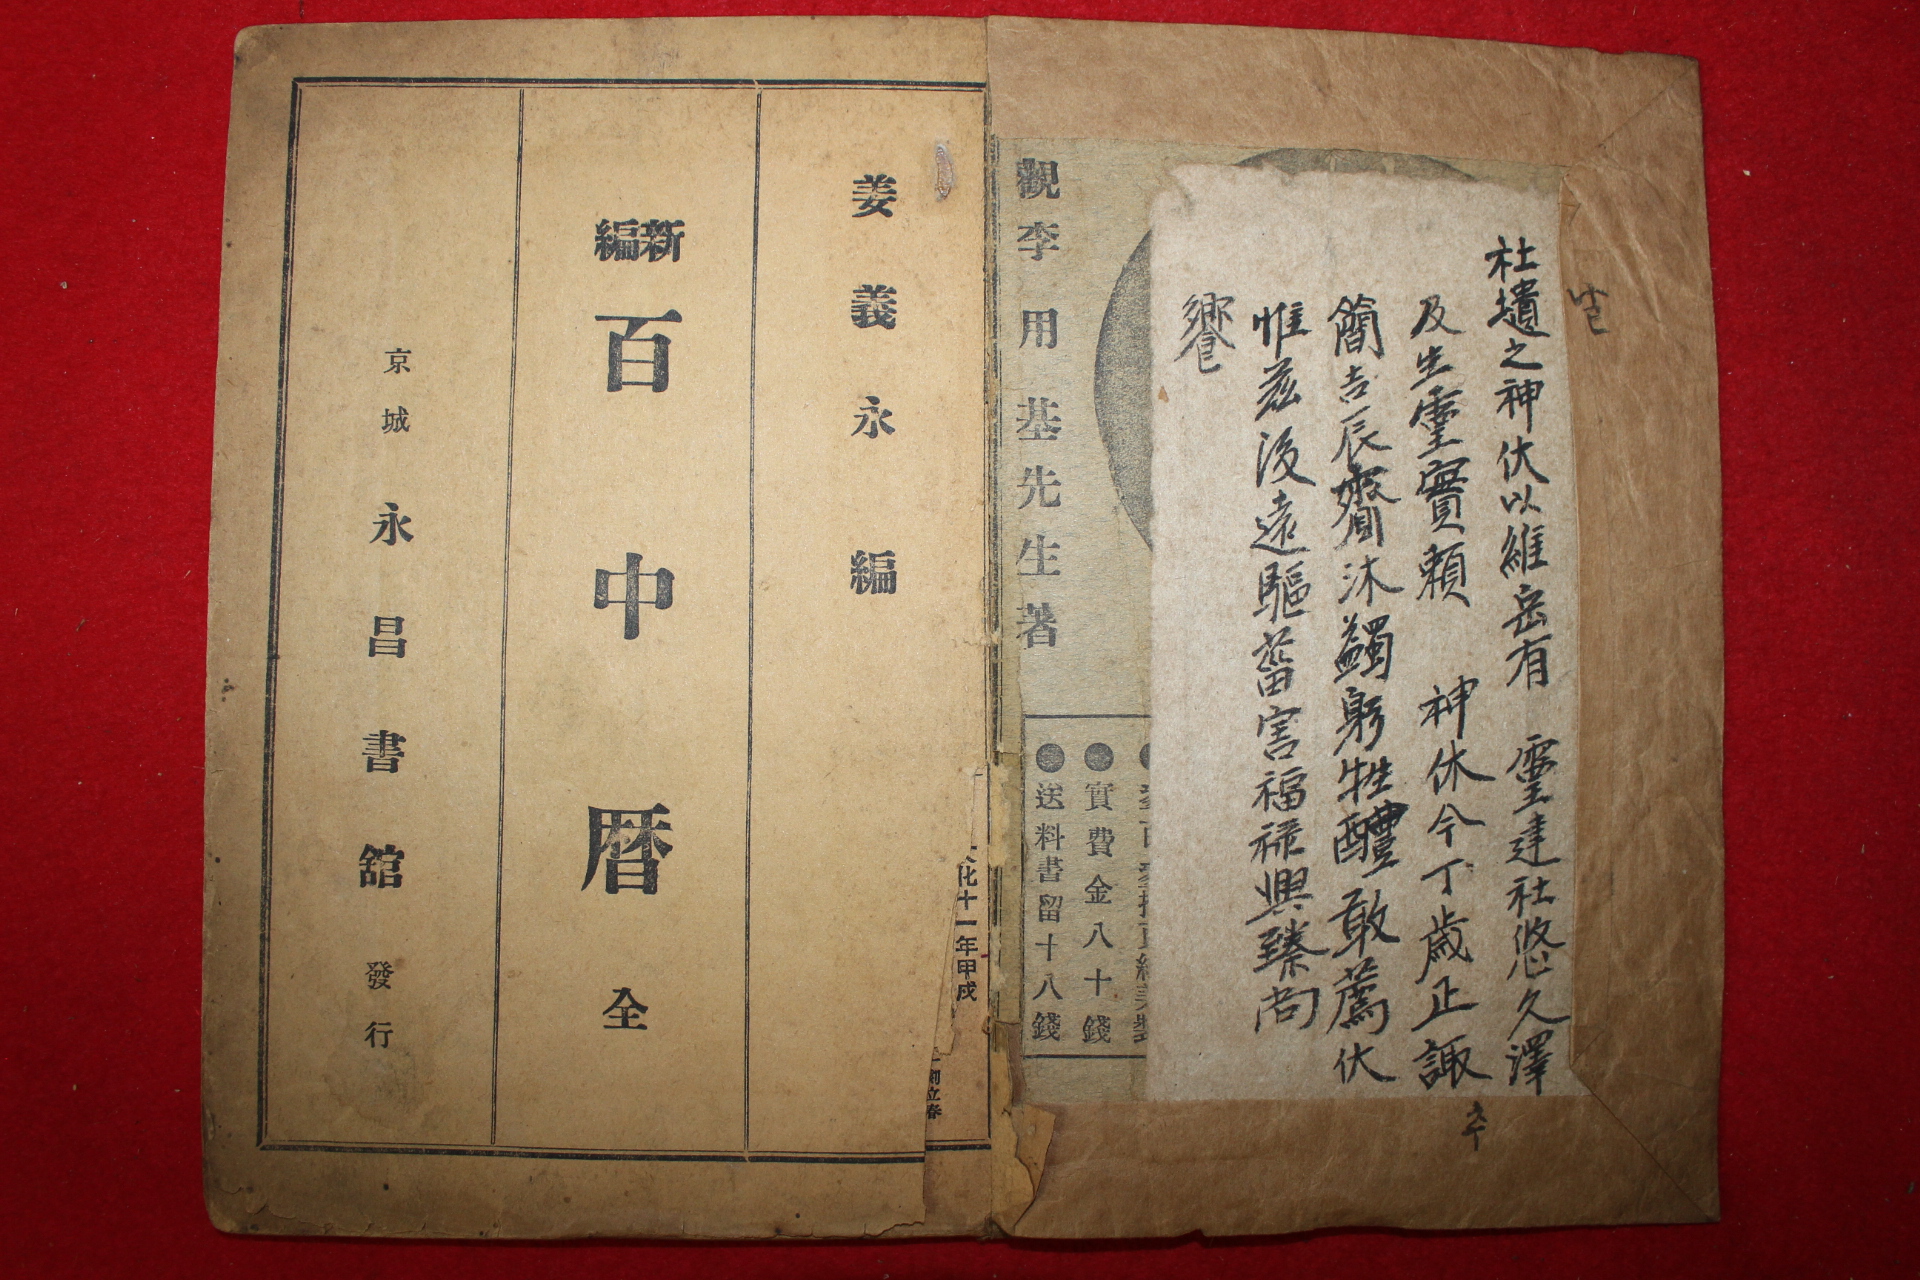 社壝之神伏以維岳有 靈建社悠久澤
及生靈實賴 神休今丁歲正諏
簡吉辰齋沐蠲躬牲醴敢薦伏
惟茲後遠驅菑害福祿興臻尚
饗
觀李用基先生著
實費金八十錢
送料書留十八錢
姜義永編
新編 百中曆 全
京城 永昌書館 發行
化十一年甲戌
立春